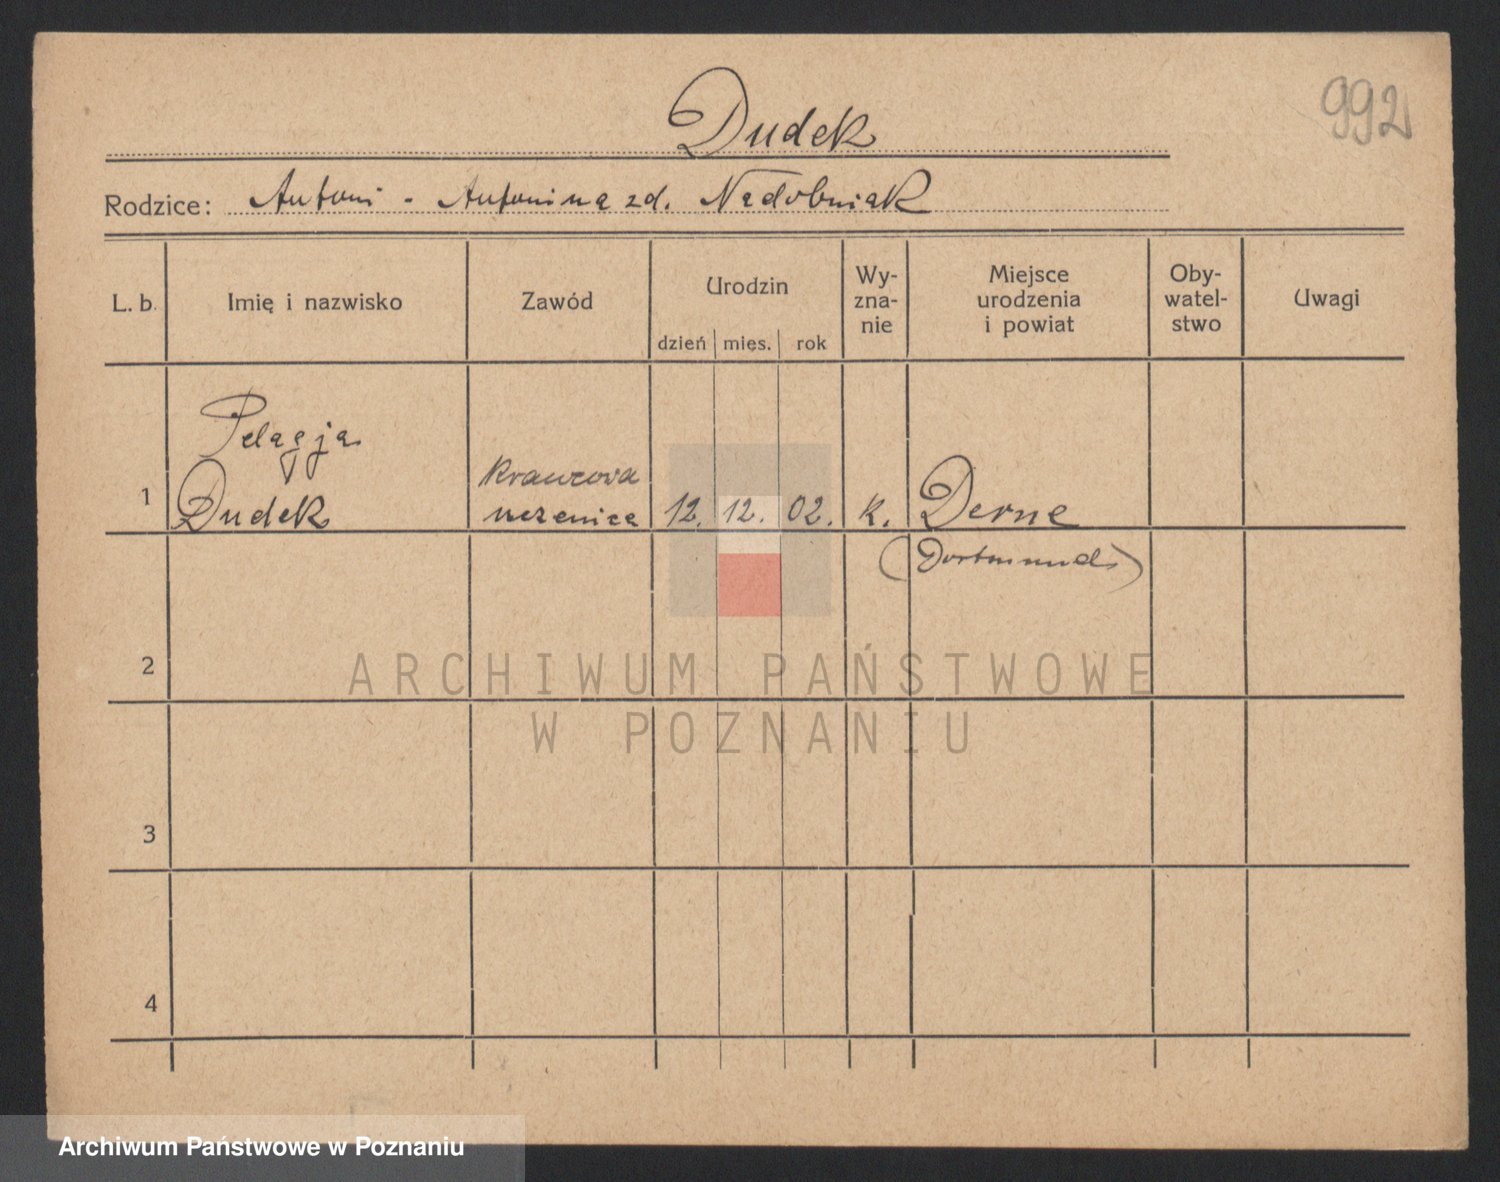 Dudek
992
Rodzice: Antoni - Antonina zd. Nadobniak
L. b.
Imię i nazwisko
Zawód
Urodzin
dzień mies. rok
Wy-
zna-
nie
Miejsce
urodzenia
i powiat
Oby-
watel-
stwo
Uwagi
1
Pelagja
Dudek
Krawcowa
uczenica
12. 12. 02.
k.
Derne
(Dortmund)
2
3
4
ARCHIWUM PAŃSTWOWE
W POZNANIU
Archiwum Państwowe w Poznaniu